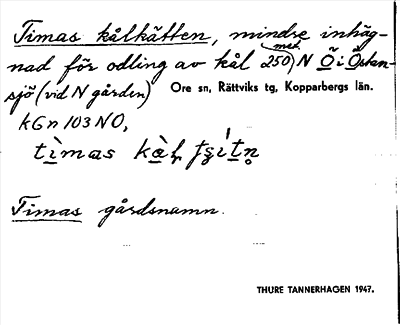 Timas kålkätten, mindre inhäg-
nad för odling av kål 250 met. N Ö i Östan-
sjö (vid N gården) Ore sn, Rättviks tg, Kopparbergs län.
kGn 103 NO,
Timas gårdsnamn.
THURE TANNERHAGEN 1947.